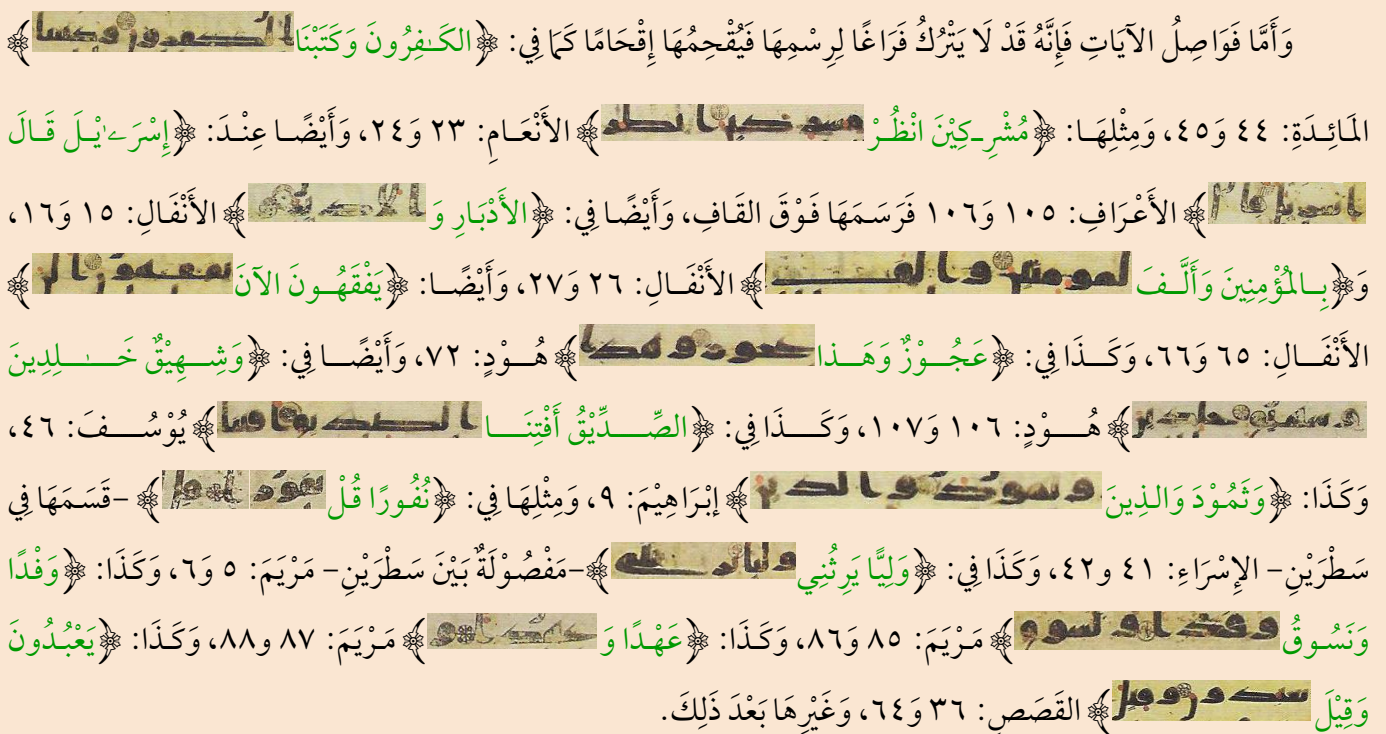 وَأَمَّا فَوَاصِلُ الآيَاتِ فَإِنَّهُ قَدْ لَا يَتْرُكُ فَرَاغًا لِرِسْمِهَا فَيُقْحِمُهَا إِقْحَامًا كَمَا فِي: ﴿الكَـٰفِرُونَ وَكَتَبْنَا﴾
المَائِدَةِ: ٤٤ وَ٤٥، وَمِثْلِهَا: ﴿مُشْرِكِيْنَ انْظُرْ﴾ الأَنْعَامِ: ٢٣ وَ٢٤، وَأَيْضًا عِنْدَ: ﴿إِسْرَءِيْلَ قَالَ
﴾ الأَعْرَافِ: ١٠٥ وَ١٠٦ فَرَسَمَهَا فَوْقَ القَافِ، وَأَيْضًا فِي: ﴿الأَدْبَارِ وَ﴾ الأَنْفَالِ: ١٥ وَ١٦،
وَ﴿بِالمُؤْمِنِينَ وَأَلَّفَ﴾ الأَنْفَالِ: ٢٦ وَ٢٧، وَأَيْضًا: ﴿يَفْقَهُونَ الآنَ﴾
الأَنْفَالِ: ٦٥ وَ٦٦، وَكَذَا فِي: ﴿عَجُوْزٌ وَهَذا﴾ هُوْدٍ: ٧٢، وَأَيْضًا فِي: ﴿وَشِهِيْقٌ خَـٰلِدِينَ
﴾ هُوْدٍ: ١٠٦ وَ١٠٧، وَكَذَا فِي: ﴿الصِّدِّيْقُ أَفْتِنَا﴾ يُوْسُفَ: ٤٦،
وَكَذَا: ﴿وَثَمُوْدَ وَالذِينَ﴾ إِبْرَاهِيْمَ: ٩، وَمِثْلِهَا فِي: ﴿نُفُورًا قُلْ﴾ -قَسَمَهَا فِي
سَطْرَيْنِ- الإِسْرَاءِ: ٤١ و٤٢، وَكَذَا فِي: ﴿وَلِيًّا يَرِثُنِي﴾-مَفْصُوْلَةٌ بَيْنَ سَطْرَيْنِ- مَرْيَمَ: ٥ وَ٦، وَكَذَا: ﴿وَفْدًا
وَنَسُوقُ﴾ مَرْيَمَ: ٨٥ وَ٨٦، وَكَذَا: ﴿عَهْدًا وَ﴾ مَرْيَمَ: ٨٧ و٨٨، وَكَذَا: ﴿يَعْبُدُونَ
وَقِيْلَ﴾ القَصَصِ: ٣٦ وَ٦٤، وَغَيْرِهَا بَعْدَ ذَلِكَ.